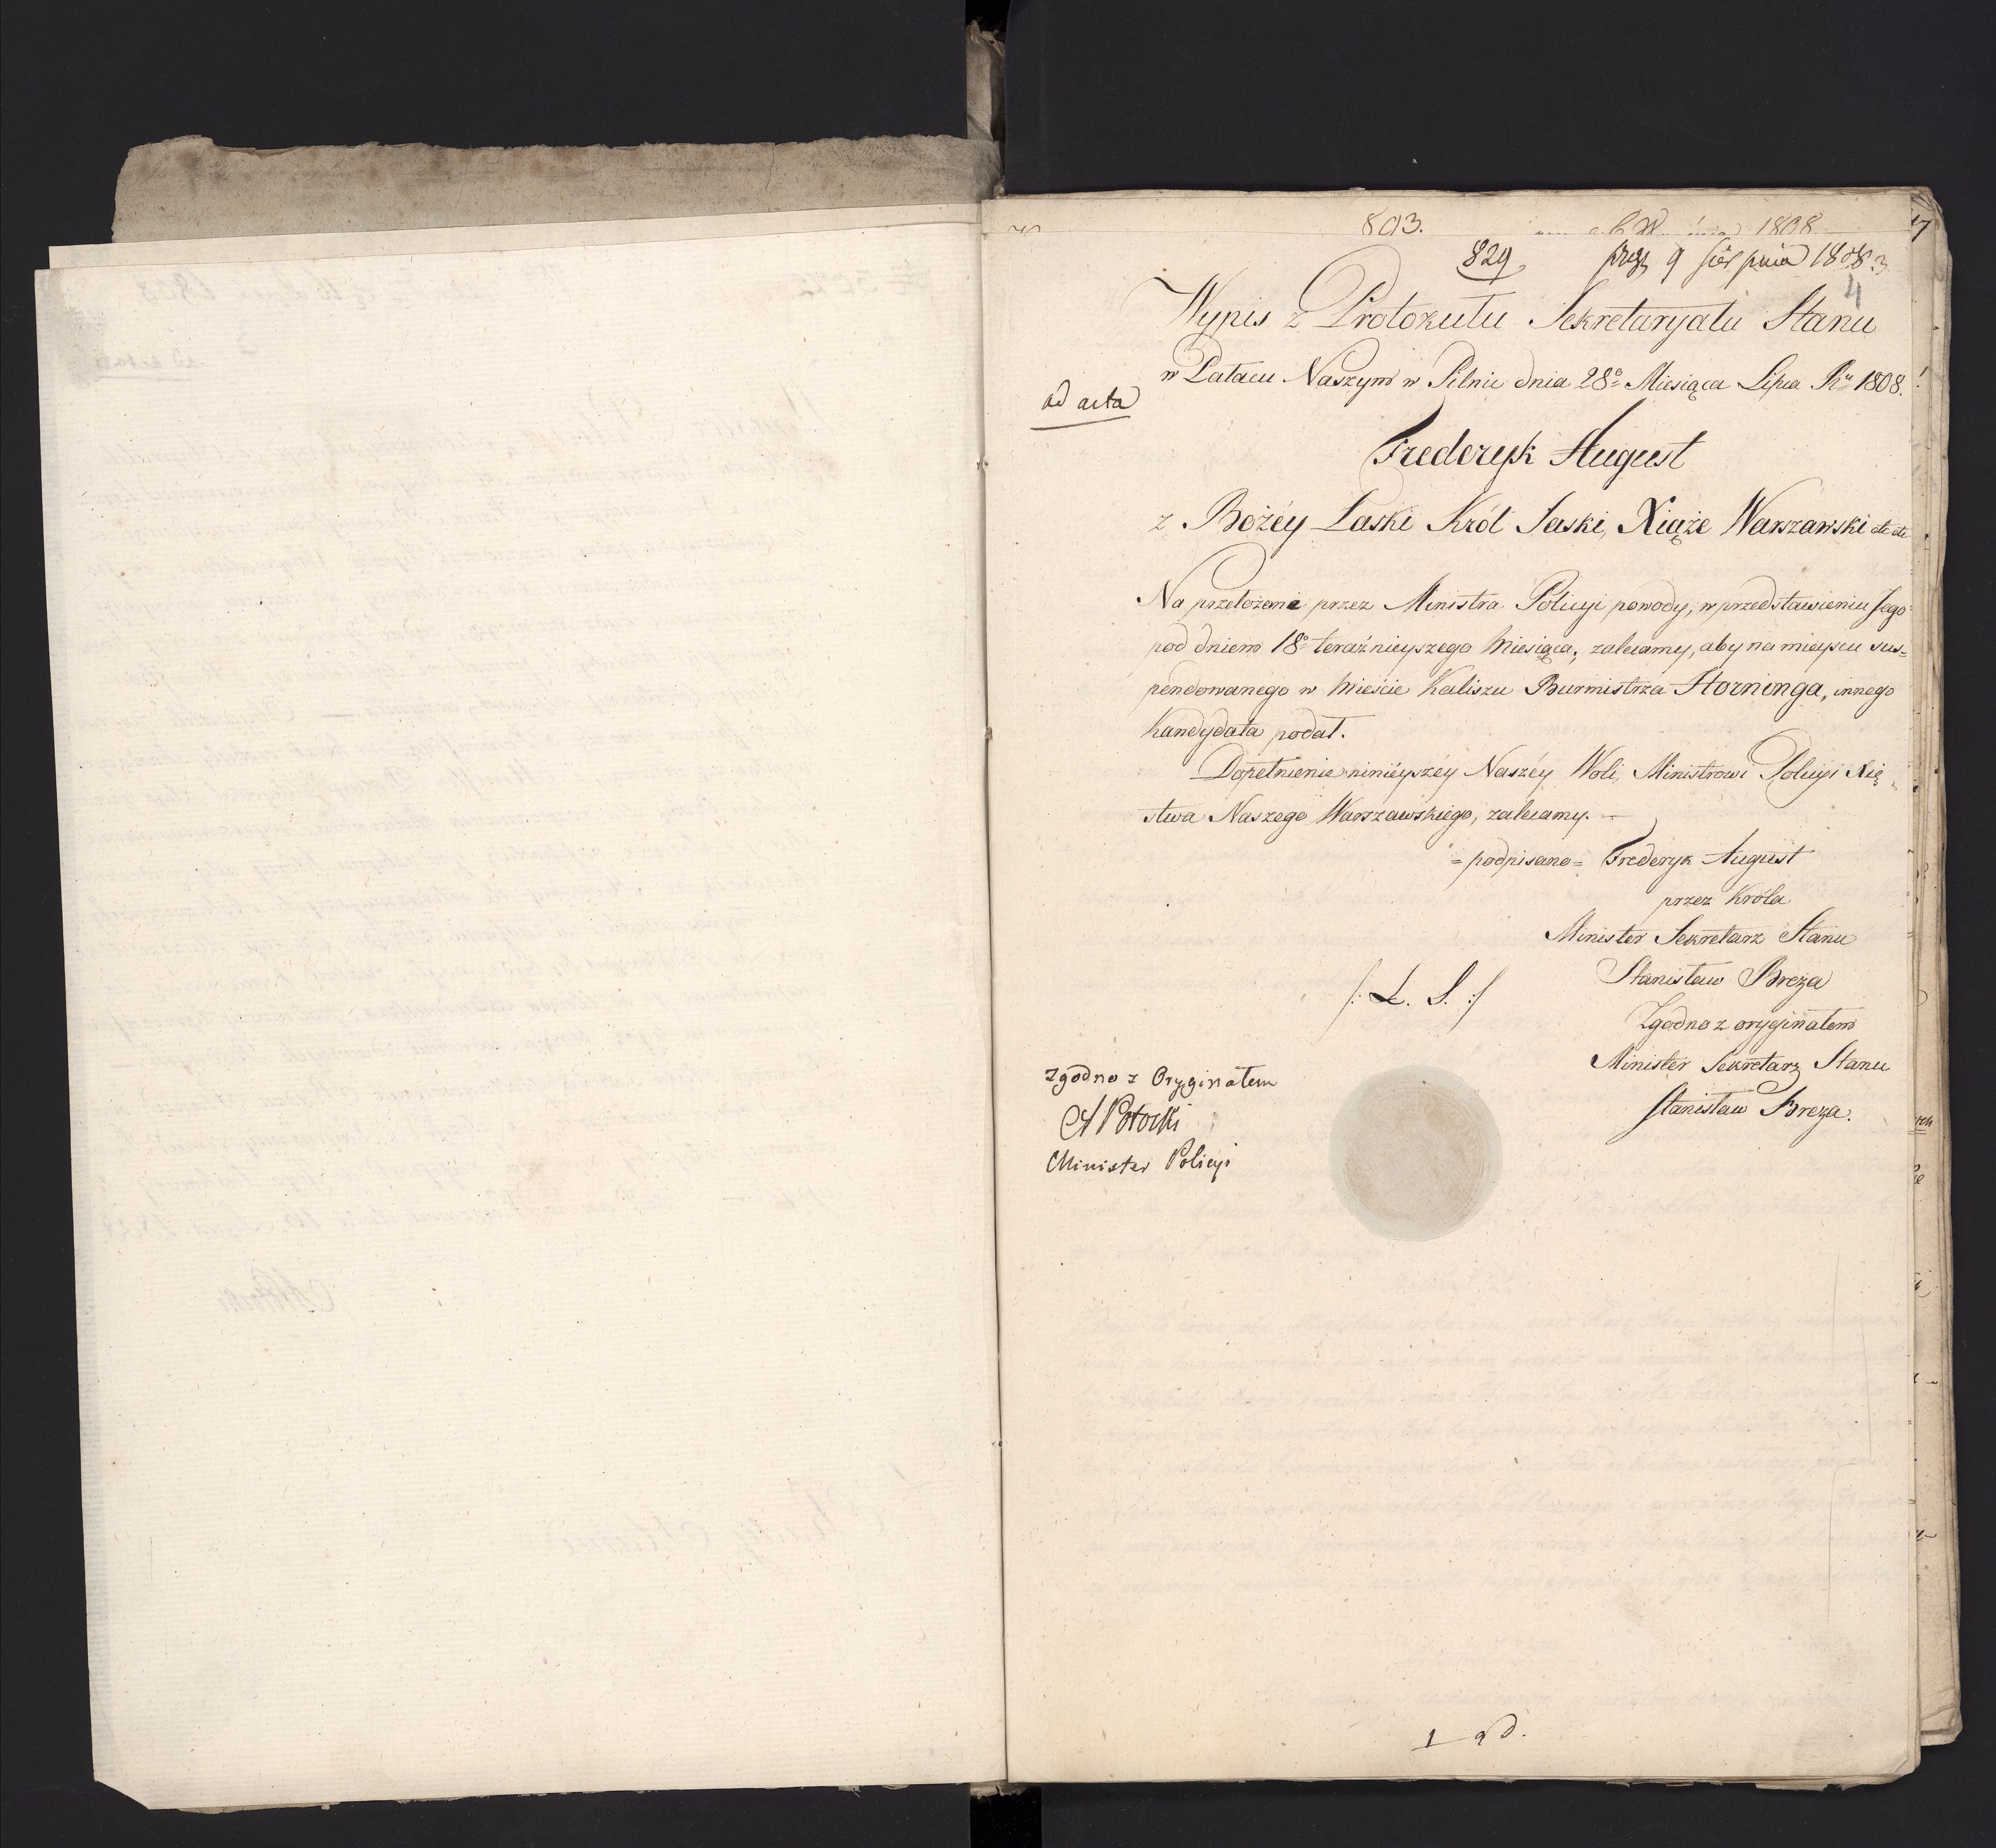 803. 1808
829 prez 9 Sierpnia 1808.
4
Wypis z Protokułu Sekretaryatu Stanu
w Pałacu Naszym w Pilnic dnia 28º Miesiąca Lipca Rº 1808.
ad acta
Frederyk August
z Bożéy Łaski Król Saski, Xiąże Warszawski etc etc
Na przełożone przez Ministra Policyi powody, w przedstawieniu Jego
pod dniem 18º teraźnieyszego Miesiąca; zalecamy, aby na mieyscu sus=
pendowanego w Mieście Kaliszu Burmistrza Horninga, innego
Kandydata podał.
Dopełnienie ninieyszéy Naszéy Woli, Ministrowi Policyi Xię=
stwa Naszego Warszawskiego, zalecamy. —
= podpisano = Frederyk August
przez Króla
Minister Sekretarz Stanu
Stanisław Breza
/: L. S. :/
Zgodno z oryginałem
Minister Sekretarz Stanu
Stanisław Breza.
Zgodno z Oryginałem
A Potocki
Minister Policyi
1 ad.